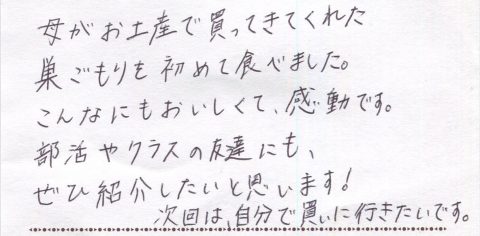 母がお土産で買ってきてくれた
巣ごもりを初めて食べました。
こんなにもおいしくて、感動です。
部活やクラスの友達にも、
ぜひ紹介したいと思います!
次回は、自分で買いに行きたいです。